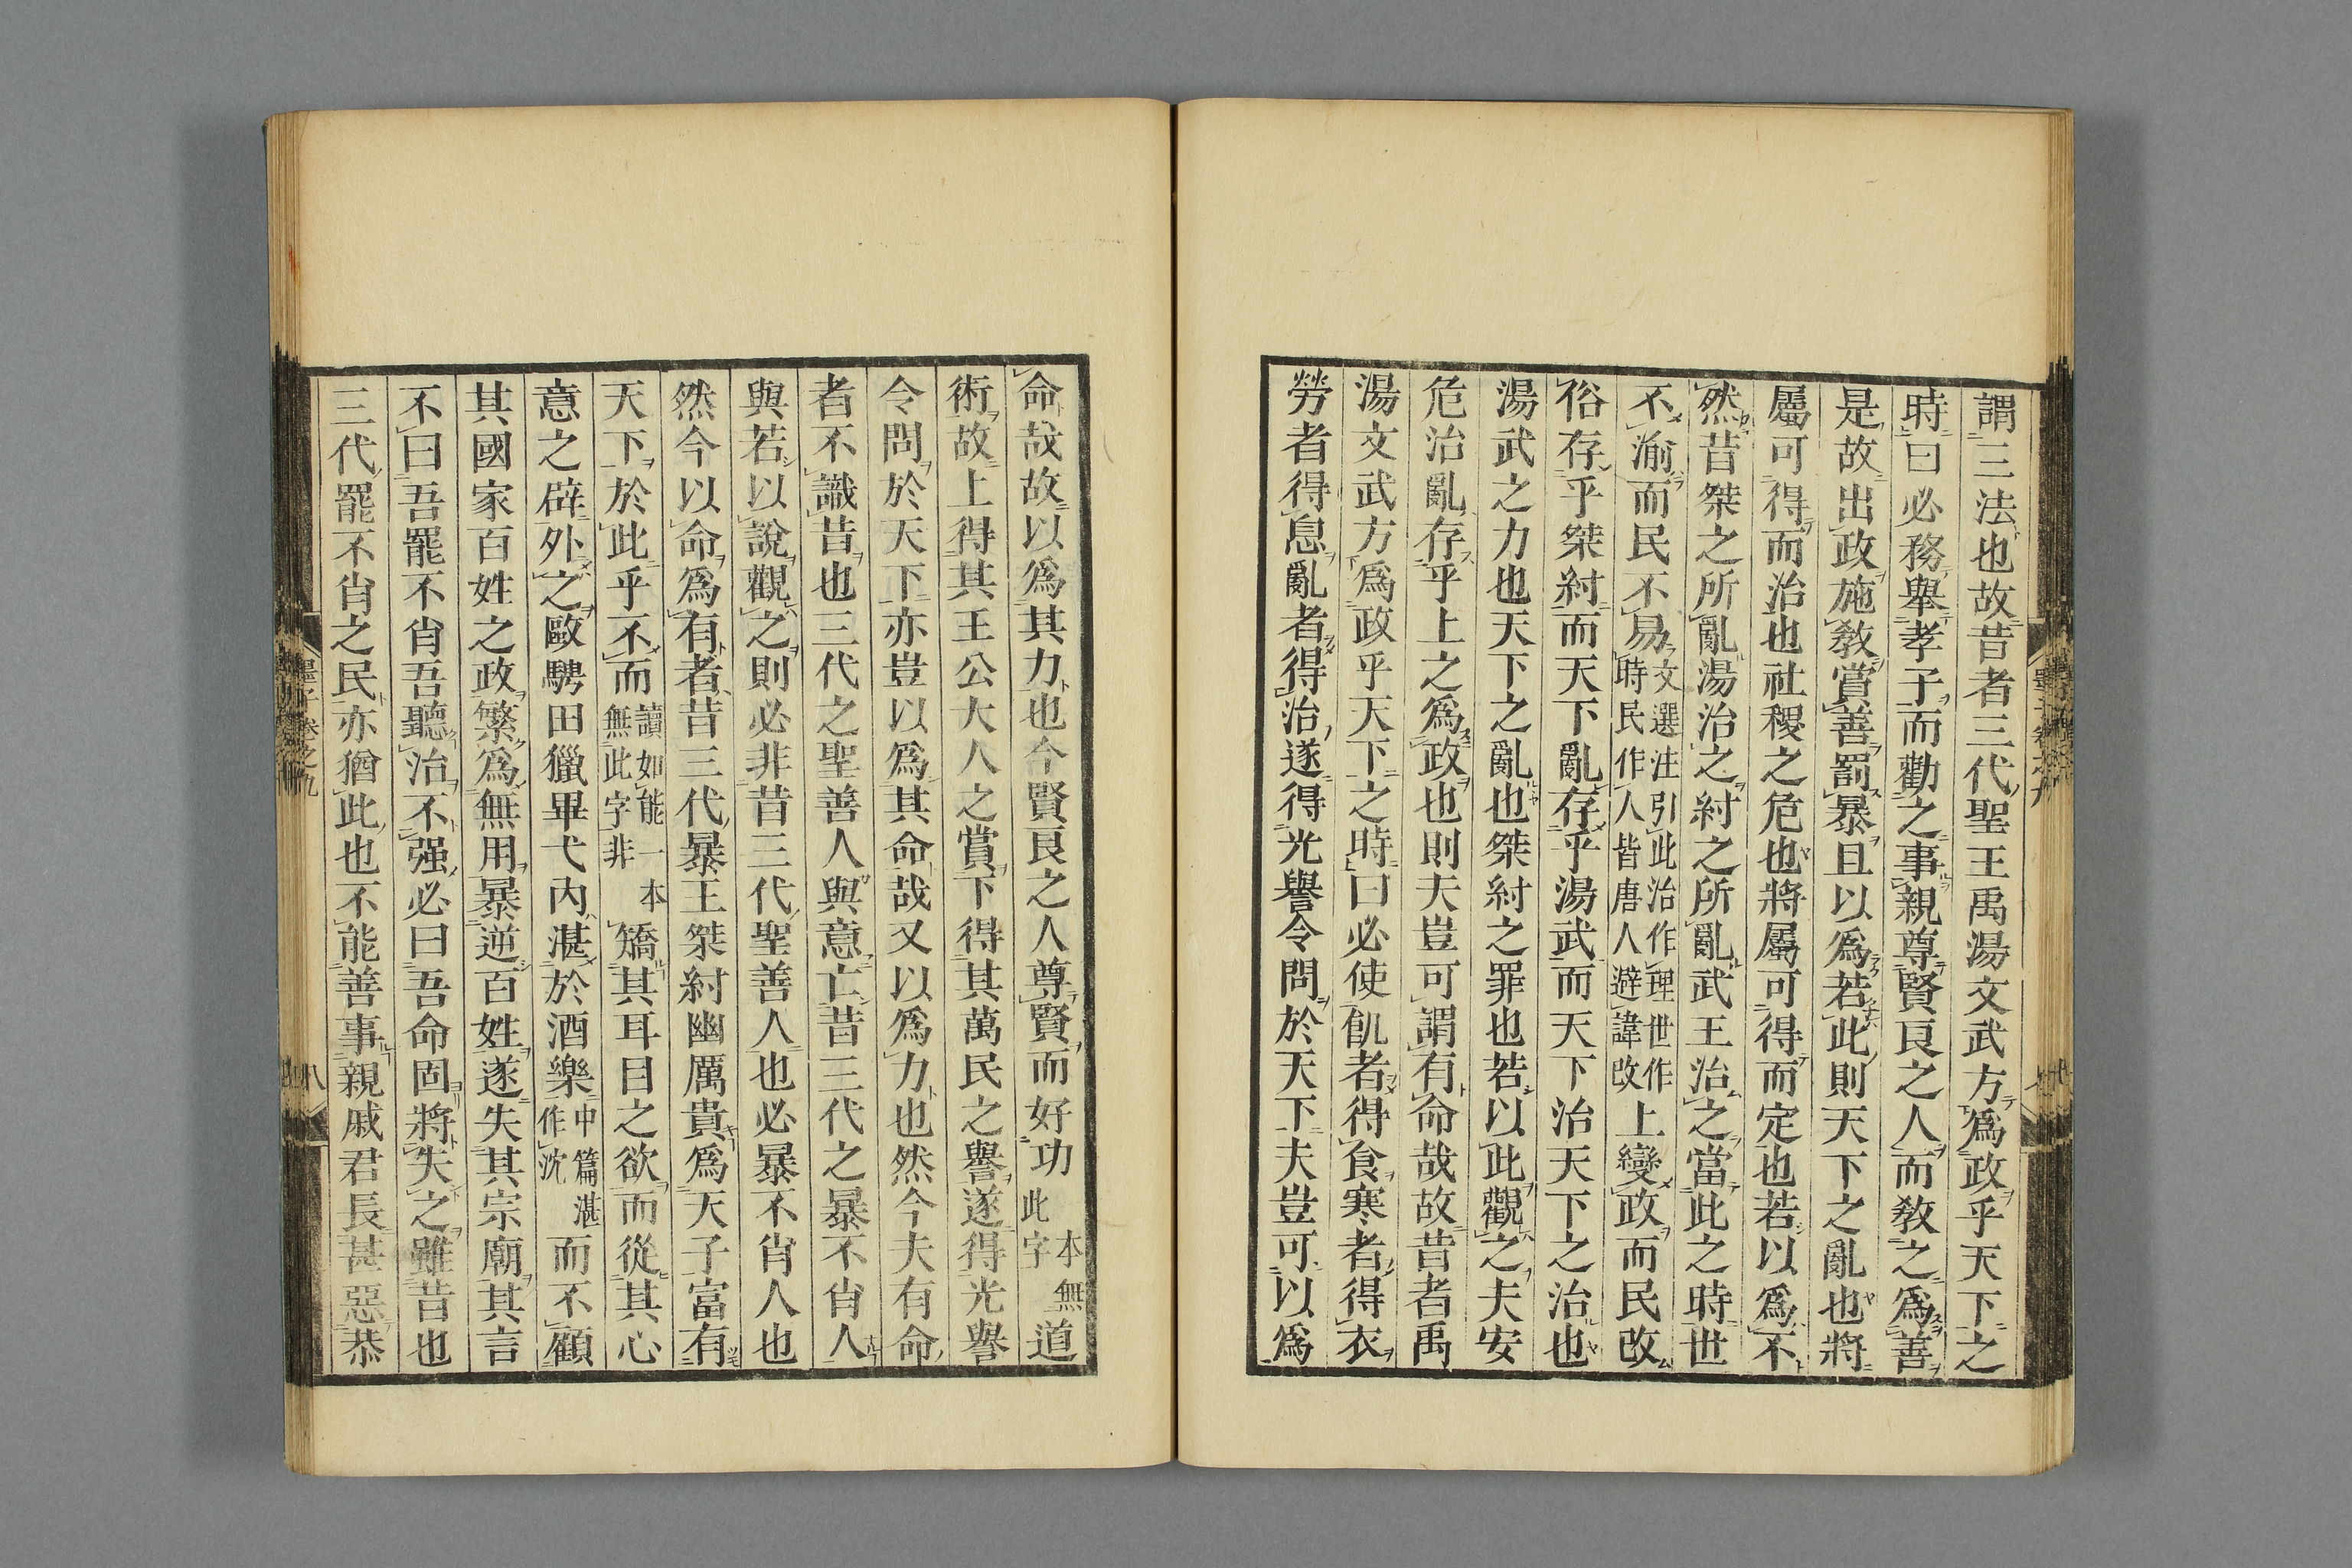 謂三法也故昔者三代聖王禹湯文武方爲政乎天下之
時曰必務舉孝子而勸之事親尊賢良之人而敎之爲善
是故出政施敎賞善罰暴且以爲若此則天下之亂也將
屬可得而治也社稷之危也將屬可得而定也若以爲不
然昔桀之所亂湯治之紂之所亂武王治之當此之時世
不渝而民不易文選注引此治作理世作時民作人皆唐人避諱改上變政而民改
俗存乎桀紂而天下亂存乎湯武而天下治天下之治也
湯武之力也天下之亂也桀紂之罪也若以此觀之夫安
危治亂存乎上之爲政也則夫豈可謂有命哉故昔者禹
湯文武方爲政乎天下之時曰必使飢者得食寒者得衣
勞者得息亂者得治遂得光譽令問於天下夫豈可以爲
命哉故以爲其力也今賢良之人尊賢而好功本無此字道
術故上得其王公大人之賞下得其萬民之譽遂得光譽
令問於天下亦豈以爲其命哉又以爲力也然今夫有命
者不識昔也三代之聖善人與意亡昔三代之暴不肖人
與若以說觀之則必非昔三代聖善人也必暴不肖人也
然今以命爲有者昔三代暴王桀紂幽厲貴爲天子富有
天下於此乎不而讀如能一本無此字非矯其耳目之欲而從其心
意之辟外之敺騁田獵畢弋內湛於酒樂中篇湛作沈而不顧
其國家百姓之政繁爲無用暴逆百姓遂失其宗廟其言
不曰吾罷不肖吾聽治不强必曰吾命固將失之雖昔也
三代罷不肖之民亦猶此也不能善事親戚君長甚惡恭
墨子卷之九